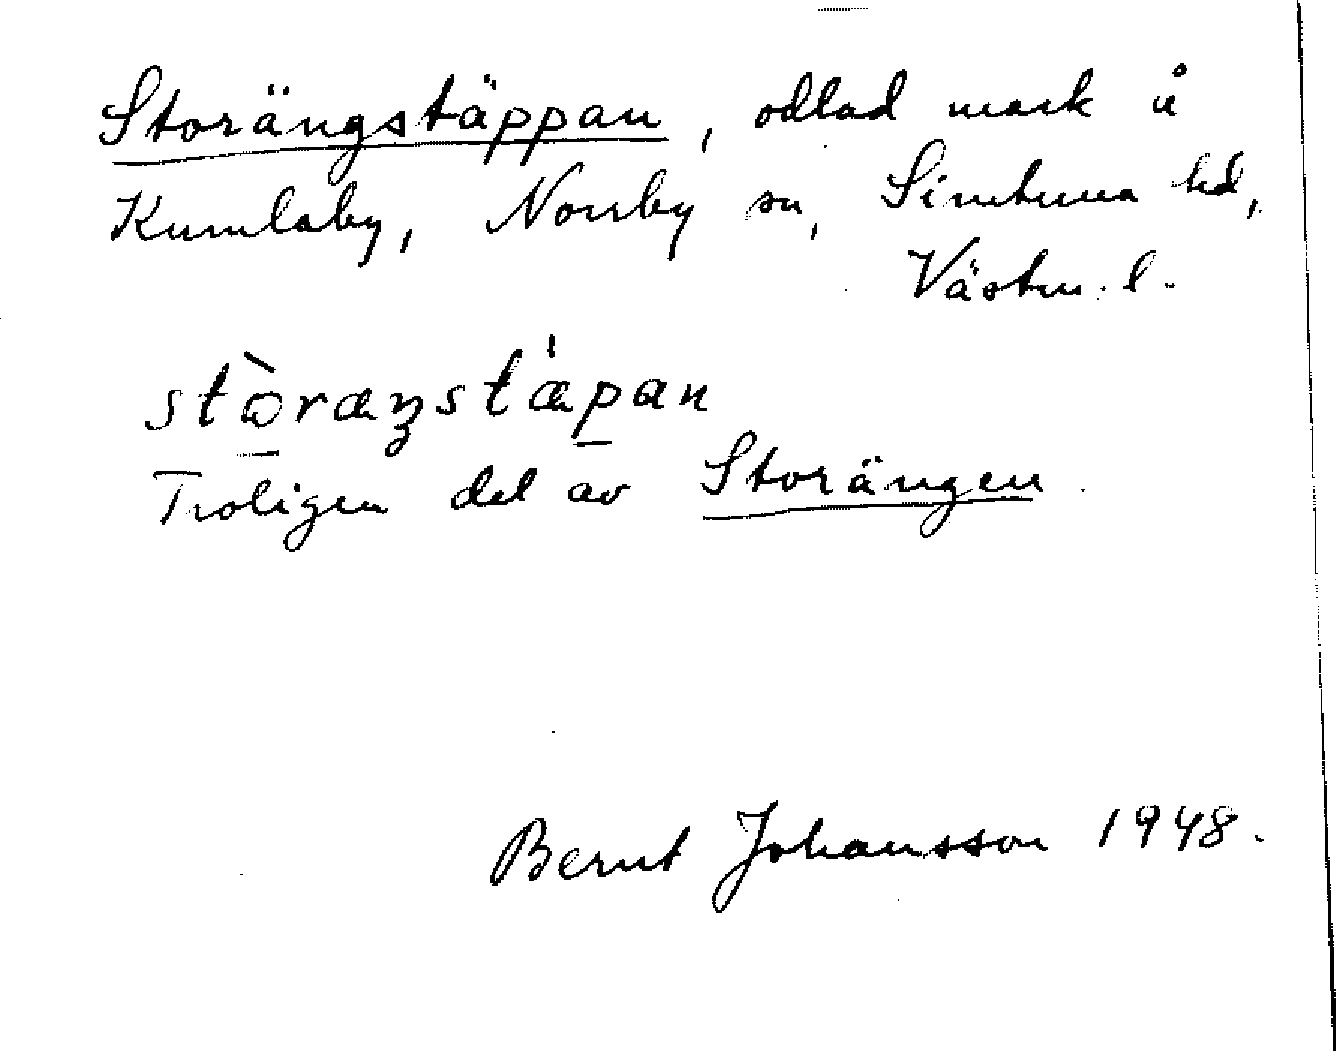 Storängstäppan, odlad mark å
Kumlaby, Norrby sn, Simtuna hd,
Västm. l.
stòræŋstæ̍pan
Troligen del av Storängen.
Bernt Johansson 1948.